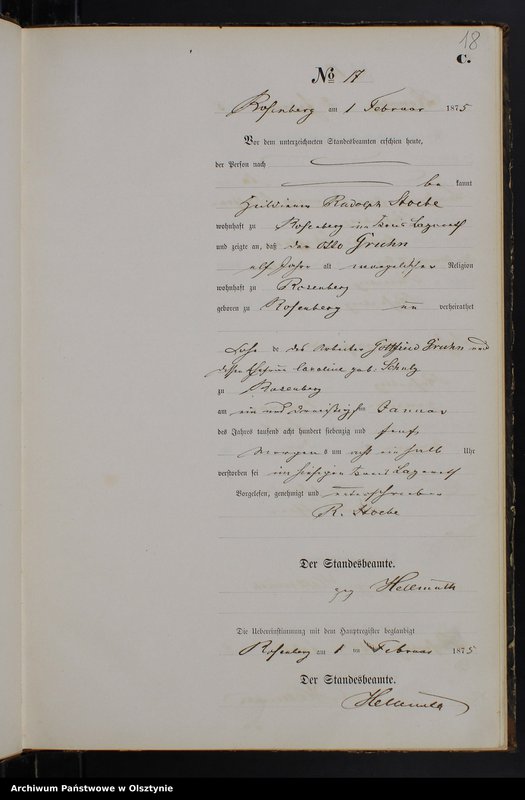 18
C.
No 17
Rosenberg am 1 Februar 1875
Vor dem unterzeichneten Standesbeamten erschien heute,
der Person nach
be kannt
Rudolph Stoebe
wohnhaft zu Rosenberg im Kreis Lazareth
und zeigte an, daß der Otto Gruhn
elf Jahre alt evangelischer Religion
wohnhaft zu Rosenberg
geboren zu Rosenberg un verheirathet
Sohn de des Arbeiter Gottfried Gruhn und
dessen Ehefrau Caroline geb. Schulz
zu Rosenberg
am ein und dreißigsten Januar
des Jahres tausend acht hundert siebenzig und fünf,
Morgens um acht ein halb Uhr
verstorben sei im hiesigen Kreis Lazareth
Vorgelesen, genehmigt und unterschrieben
R. Stoebe
Der Standesbeamte.
gez Hellmuth
Die Uebereinstimmung mit dem Hauptregister beglaubigt
Rosenberg am 1 ten Februar 1875
Der Standesbeamte.
Hellmuth
Archiwum Państwowe w Olsztynie